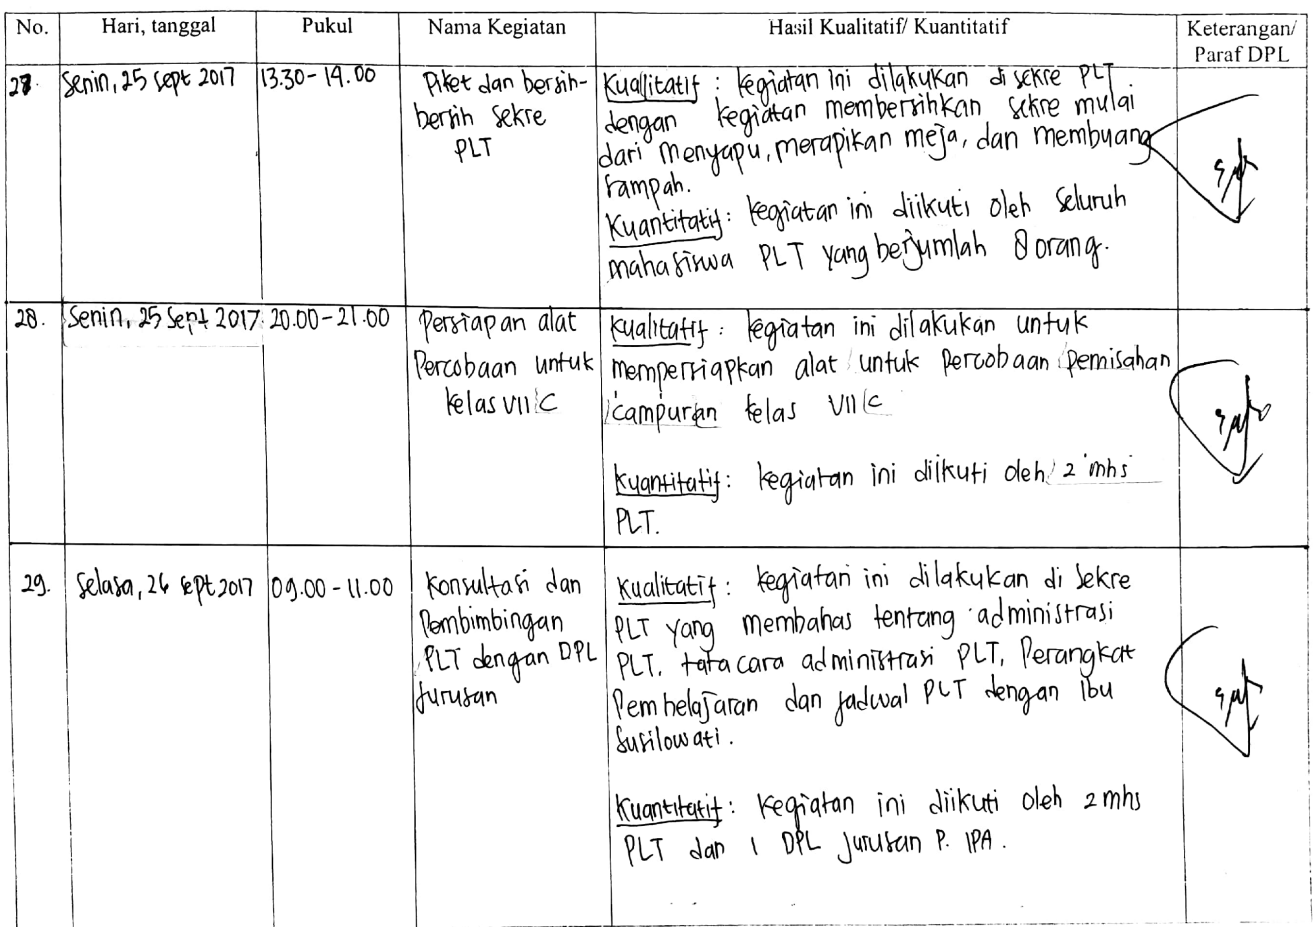 No. Hari, tanggal Pukul Nama Kegiatan Hasil Kualitatif/ Kuantitatif Keterangan/
Paraf DPL
27. Senin, 25 Sept 2017 13.30 - 14.00 Piket dan bersih-
bersih sekre
PLT
Kualitatif : kegiatan ini dilakukan di sekre PLT
dengan kegiatan membersihkan sekre mulai
dari menyapu, merapikan meja, dan membuang
sampah.
Kuantitatif : kegiatan ini diikuti oleh seluruh
mahasiswa PLT yang berjumlah 8 orang.
28. Senin, 25 Sept 2017 20.00 - 21.00 Persiapan alat
Percobaan untuk
kelas VII C
Kualitatif : kegiatan ini dilakukan untuk
mempersiapkan alat untuk Percobaan pemisahan
campuran kelas VII C
Kuantitatif : kegiatan ini diikuti oleh 2 mhs
PLT.
29. Selasa, 26 Sept 2017 09.00 - 11.00 Konsultasi dan
Pembimbingan
PLT dengan DPL
Jurusan
Kualitatif : kegiatan ini dilakukan di sekre
PLT yang membahas tentang administrasi
PLT, tata cara administrasi PLT, Perangkat
Pembelajaran dan jadwal PLT dengan Ibu
Susilowati.
Kuantitatif : kegiatan ini diikuti oleh 2 mhs
PLT dan 1 DPL Jurusan P. IPA.